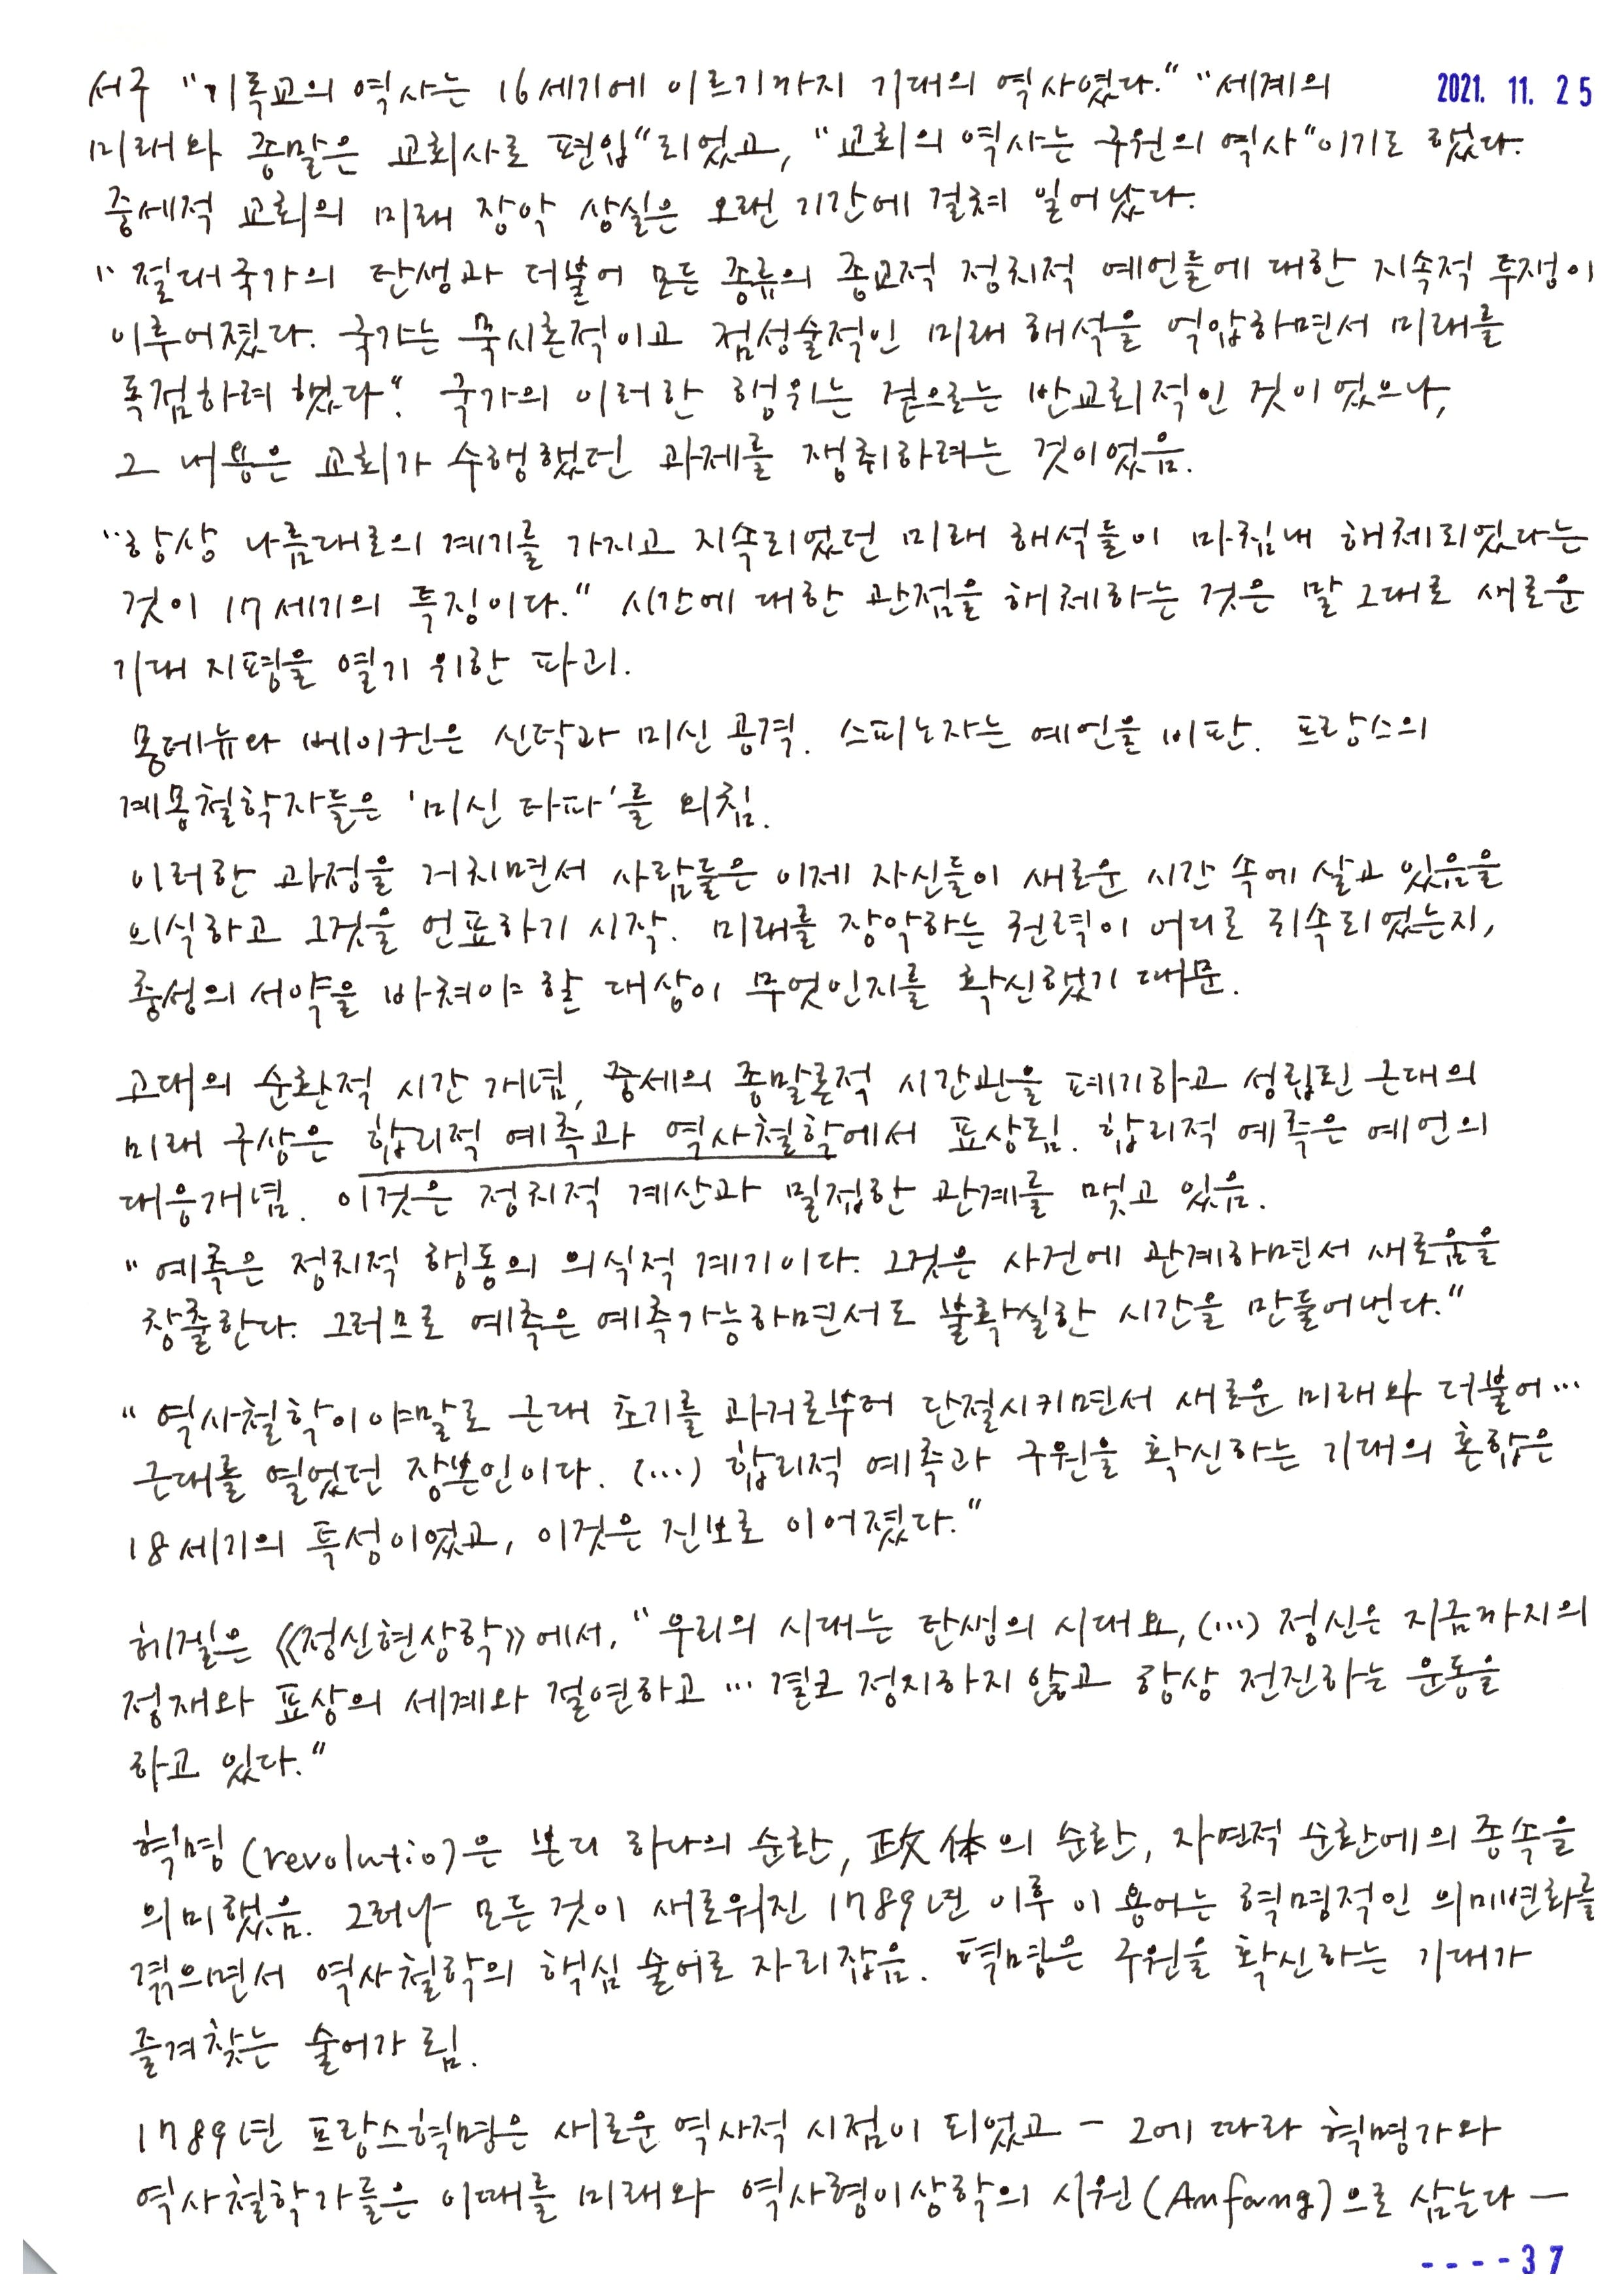 서구 "기독교의 역사는 16세기에 이르기까지 기대의 역사였다." "세계의
2021. 11. 25
미래와 종말은 교회사로 편입"되었고, "교회의 역사는 구원의 역사"이기도 했다.
중세적 교회의 미래 장악 상실은 오랜 기간에 걸쳐 일어났다.
"절대국가의 탄생과 더불어 모든 종류의 종교적 정치적 예언들에 대한 지속적 투쟁이
이루어졌다. 국가는 묵시론적이고 점성술적인 미래 해석을 억압하면서 미래를
독점하려 했다". 국가의 이러한 행위는 겉으로는 반교회적인 것이었으나,
그 내용은 교회가 수행했던 과제를 쟁취하려는 것이었음.
"항상 나름대로의 계기를 가지고 지속되었던 미래 해석들이 마침내 해체되었다는
것이 17세기의 특징이다." 시간에 대한 관점을 해체하는 것은 말 그대로 새로운
기대 지평을 열기 위한 파괴.
몽테뉴와 베이컨은 신탁과 미신 공격. 스피노자는 예언을 비판. 프랑스의
계몽철학자들은 '미신 타파'를 외침.
이러한 과정을 거치면서 사람들은 이제 자신들이 새로운 시간 속에 살고 있음을
의식하고 그것을 언표하기 시작. 미래를 장악하는 권력이 어디로 귀속되었는지,
충성의 서약을 바쳐야 할 대상이 무엇인지를 확신했기 때문.
고대의 순환적 시간 개념, 중세의 종말론적 시간관을 폐기하고 성립된 근대의
미래 구상은 합리적 예측과 역사철학에서 표상됨. 합리적 예측은 예언의
대응개념. 이것은 정치적 계산과 밀접한 관계를 맺고 있음.
"예측은 정치적 행동의 의식적 계기이다. 그것은 사건에 관계하면서 새로움을
창출한다. 그러므로 예측은 예측가능하면서도 불확실한 시간을 만들어낸다."
"역사철학이야말로 근대 초기를 과거로부터 단절시키면서 새로운 미래와 더불어…
근대를 열었던 장본인이다. (…) 합리적 예측과 구원을 확신하는 기대의 혼합은
18세기의 특성이었고, 이것은 진보로 이어졌다."
헤겔은 《정신현상학》에서, "우리의 시대는 탄생의 시대요, (…) 정신은 지금까지의
정재와 표상의 세계와 절연하고 … 결코 정지하지 않고 항상 전진하는 운동을
하고 있다."
혁명(revolutio)은 본디 하나의 순환, 政体의 순환, 자연적 순환에의 종속을
의미했음. 그러나 모든 것이 새로워진 1789년 이후 이 용어는 혁명적인 의미변화를
겪으면서 역사철학의 핵심 술어로 자리잡음. 혁명은 구원을 확신하는 기대가
즐겨찾는 술어가 됨.
1789년 프랑스혁명은 새로운 역사적 시점이 되었고 — 그에 따라 혁명가와
역사철학가들은 이때를 미래와 역사형이상학의 시원(Anfang)으로 삼는다 —
----37